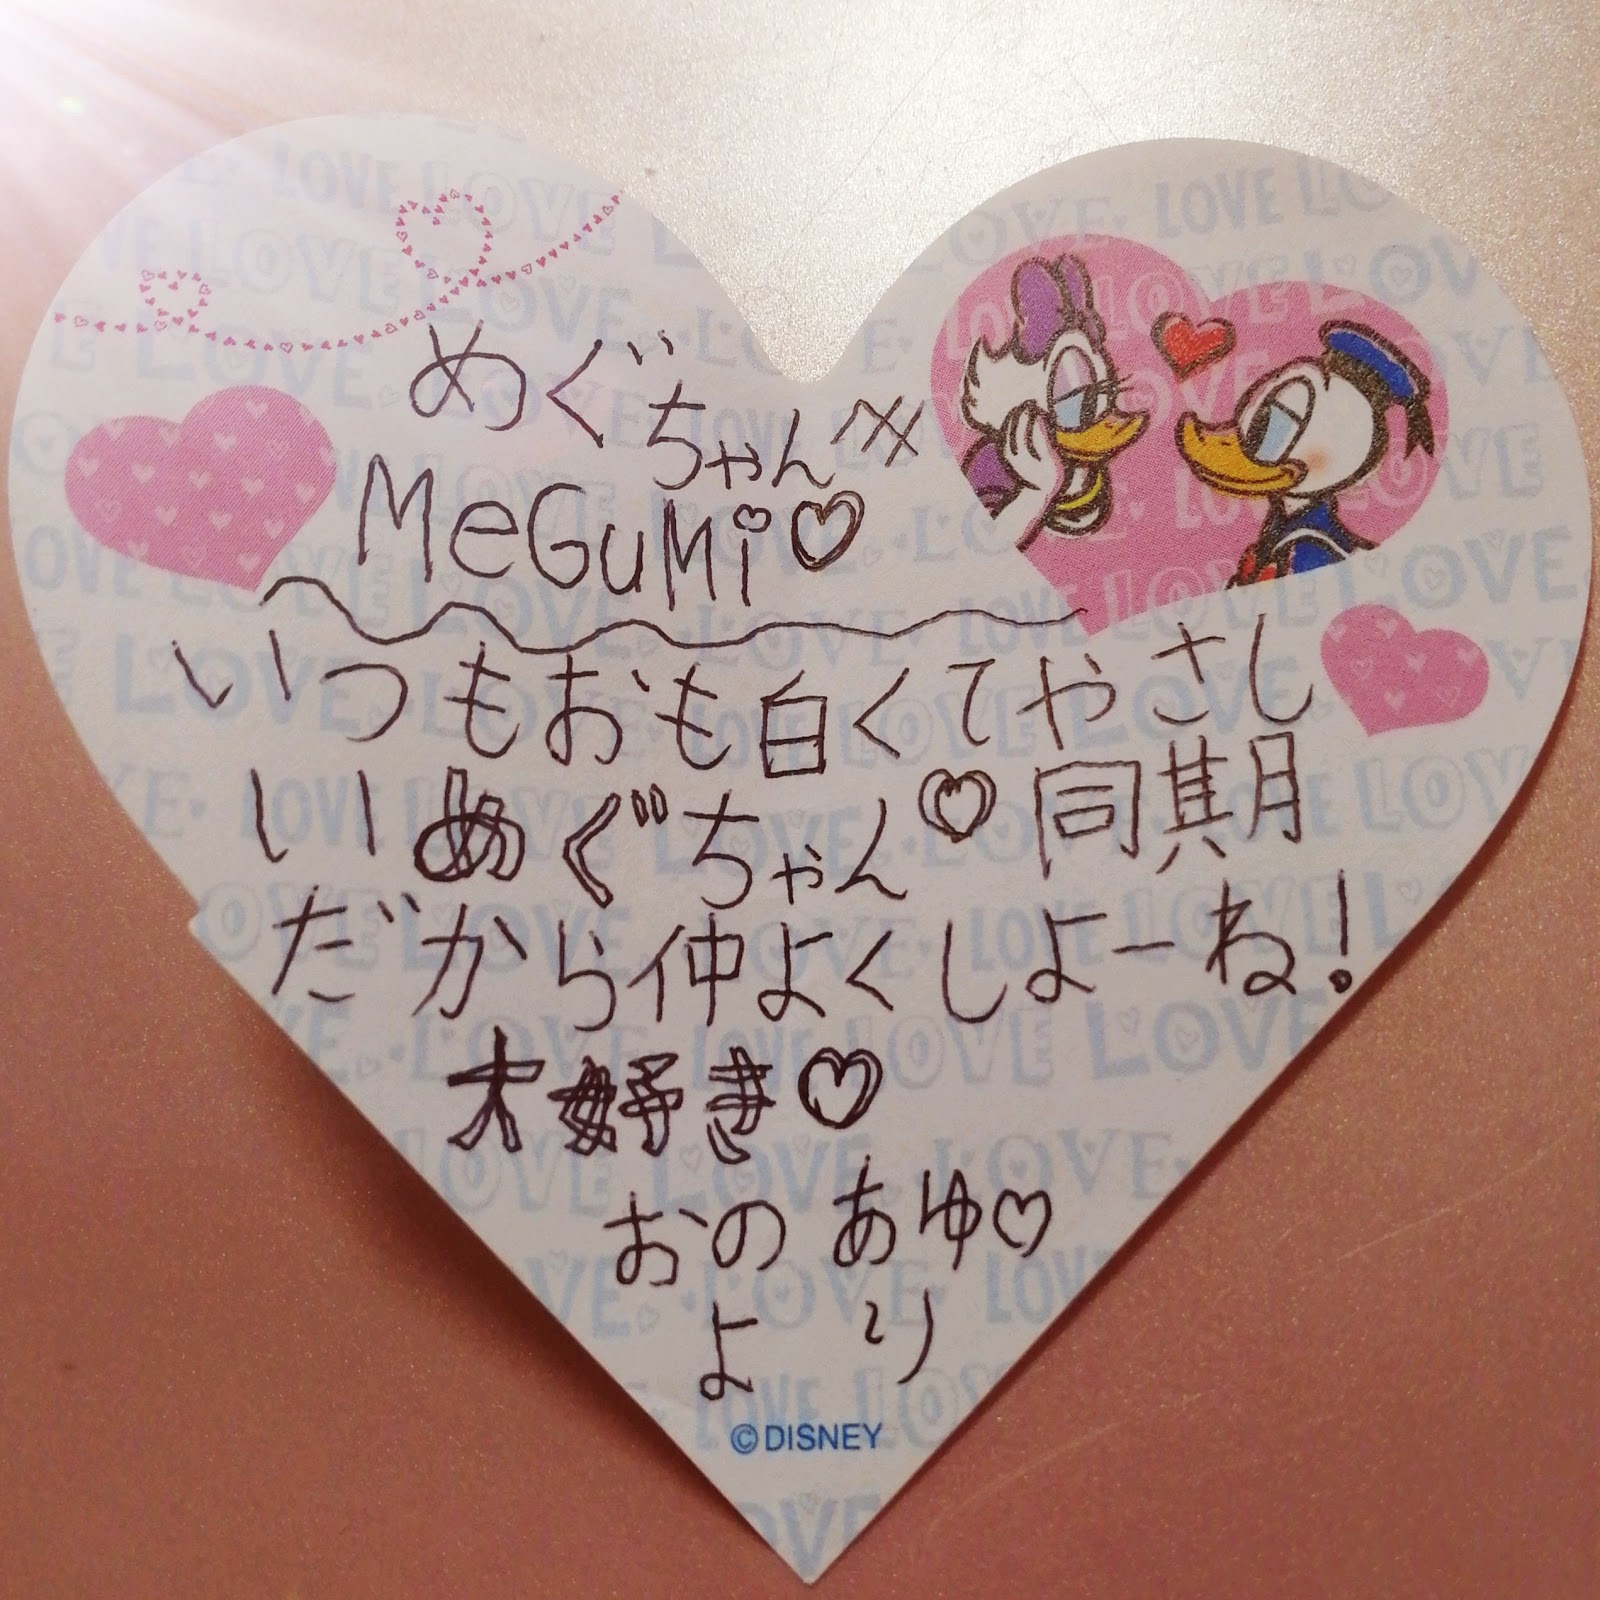 めぐちゃんへ
MeGuMi♡
いつもおも白くてやさし
いめぐちゃん♡同期
だから仲よくしよーね!
大好き♡
おの あゆ♡
より
©DISNEY